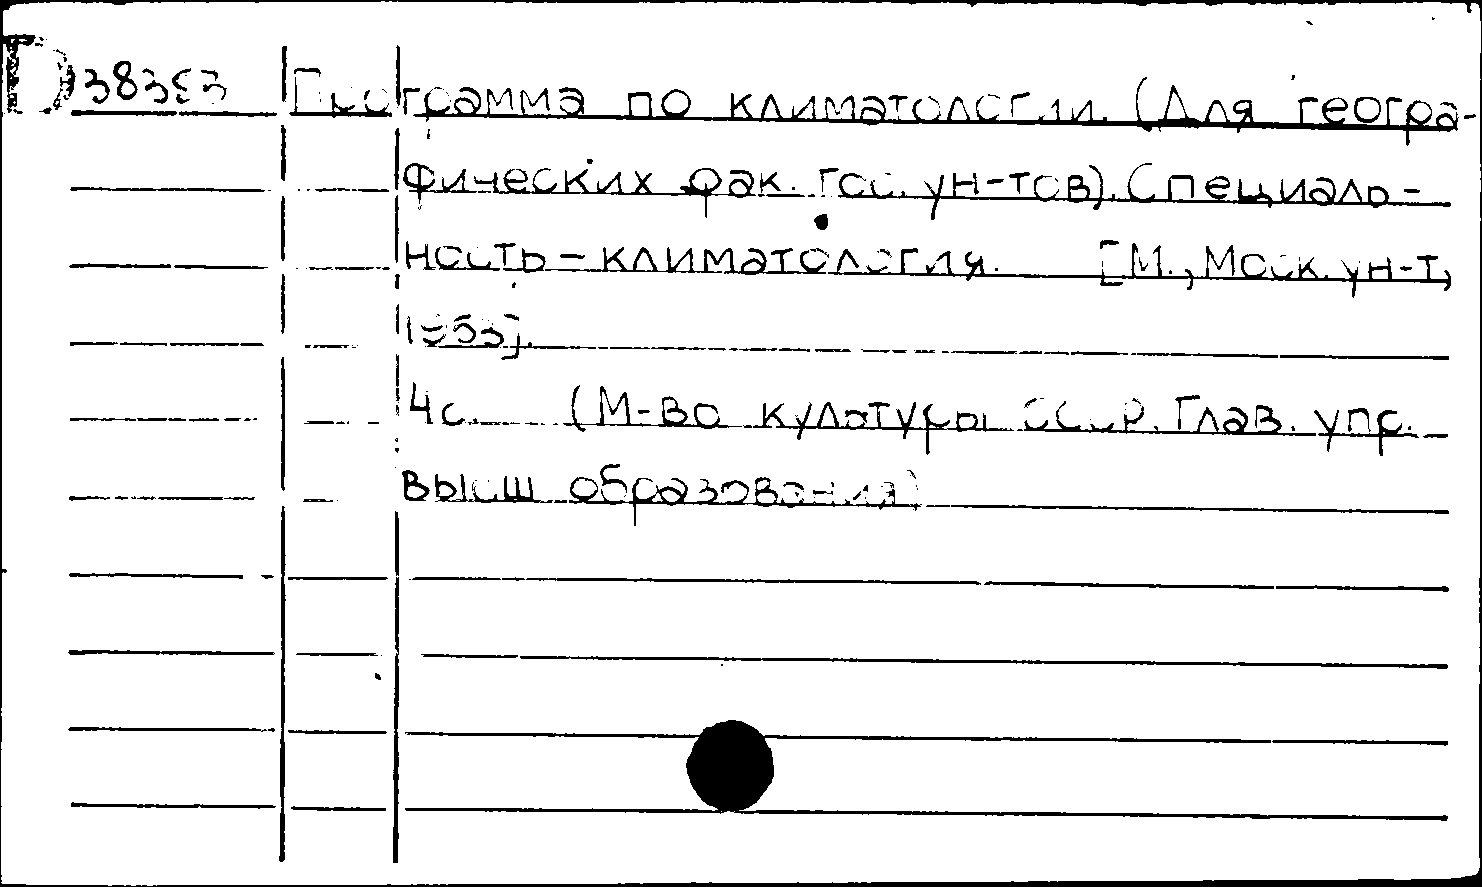 D 38353 Программа по климатологии. (Для геогра-
фических фак. гос. ун-тов). Специаль-
ность – климатология. [М., Моск. ун-т,
1953].
4с. (М-во культуры СССР. Глав. упр.
высш образования)